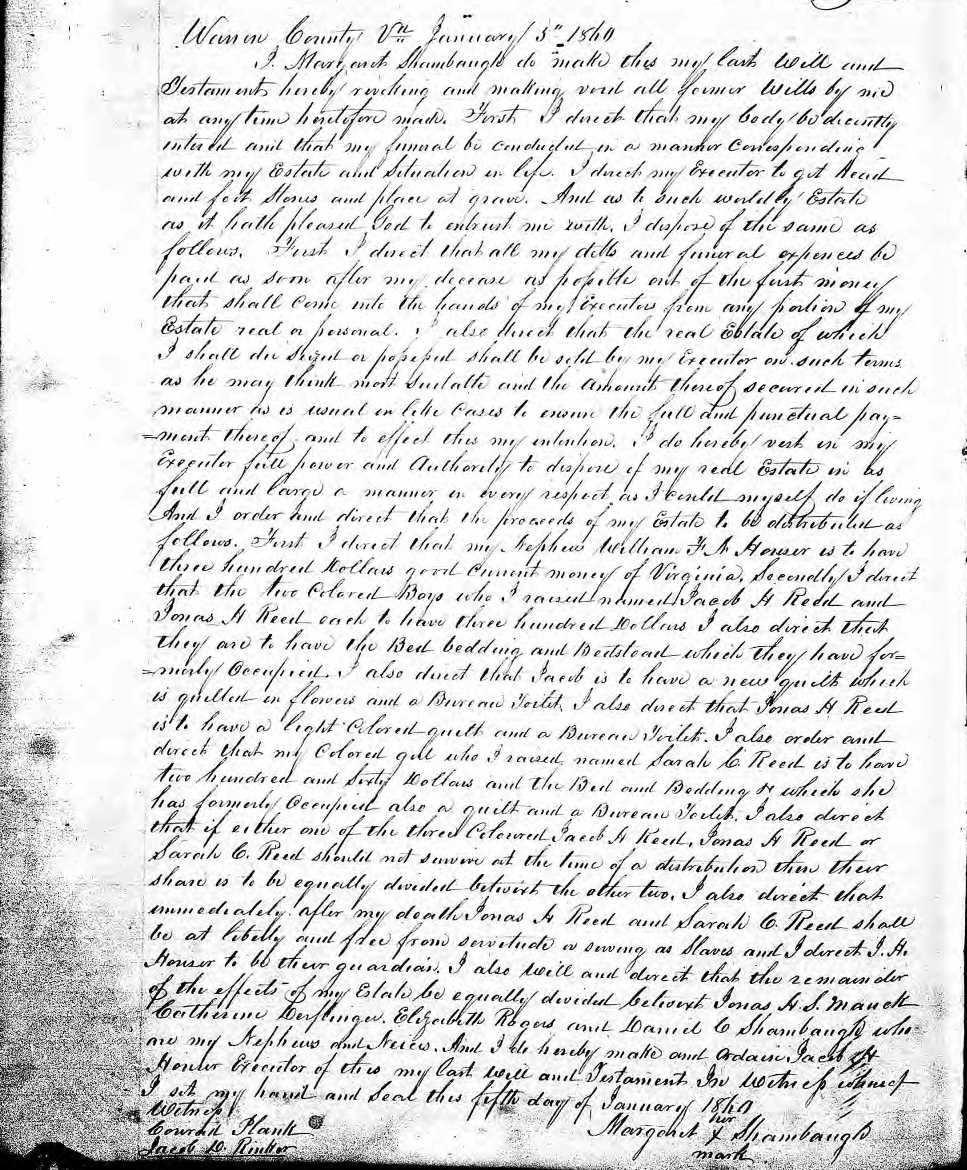 Warren County Va January 5" 1860
I. Margaret Shambaugh do make this my last Will and
Testament hereby revoking and making void all former Wills by me
at any time heretofore made. First I direct that my body be decently
intered and that my funeral be conducted in a manner corresponding
with my Estate and Situation in life. I direct my Executor to get Head
and foot Stones and place at grave. And as to such worldly Estate
as it hath pleased God to entrust me with. I dispose of the same as
follows. First I direct that all my debts and funeral expences be
paid as soon after my decease as possible out of the first money
that shall come into the hands of my Executor from any portion of my
Estate real or personal. I also direct that the real Estate of which
I shall die Seized or possessed shall be sold by my Executor on such terms
as he may think most suitable and the amount thereof secured in such
manner as is usual in like Cases to ensure the full and punctual pay=
=ment thereof and to effect this my intention. I do hereby vest in my
Executor full power and Authority to dispose of my real Estate in as
full and large a manner in every respect as I could myself do if living
And I order and direct that the proceeds of my Estate to be distributed as
follows. First I direct that my Nephew William F. A. Houser is to have
three hundred Dollars good current money of Virginia. Secondly I direct
that the two Colored Boys who I raised named Jacob H Reed and
Jonas H Reed each to have three hundred Dollars I also direct that
they are to have the Bed bedding and Bedstead which they have for=
=merly Occupied. I also direct that Jacob is to have a new quilt which
is quilted in flowers and a Bureau Toilet. I also direct that Jonas H Reed
is to have a light Colored quilt and a Bureau Toilet. I also order and
direct that my Colored girl who I raised named Sarah C Reed is to have
two hundred and Sixty Dollars and the Bed and Bedding &c which she
has formerly Occupied also a quilt and a Bureau Toilet. I also direct
that if either one of the three Coloured Jacob H Reed, Jonas H Reed or
Sarah C. Reed should not survive at the time of a distribution then their
share is to be equally divided betwixt the other two. I also direct that
immediately after my death Jonas H Reed and Sarah C. Reed shall
be at libelly and free from servitude or serving as Slaves and I direct J. H.
Houser to be their guardian. I also Will and direct that the remainder
of the effects of my Estate be equally divided betwixt Jonas H. S. Mauck
Catherine Derflinger. Elizabeth Rogers and Daniel C Shambaugh who
are my Nephews and Neices. And I do hereby make and ordain Jacob H
Houser Executor of this my last will and Testament. In Witness whereof
I set my hand and Seal this fifth day of January 1860
Witness
her
Conrad Plank Margaret X Shambaugh
Jacob D. Rinker mark